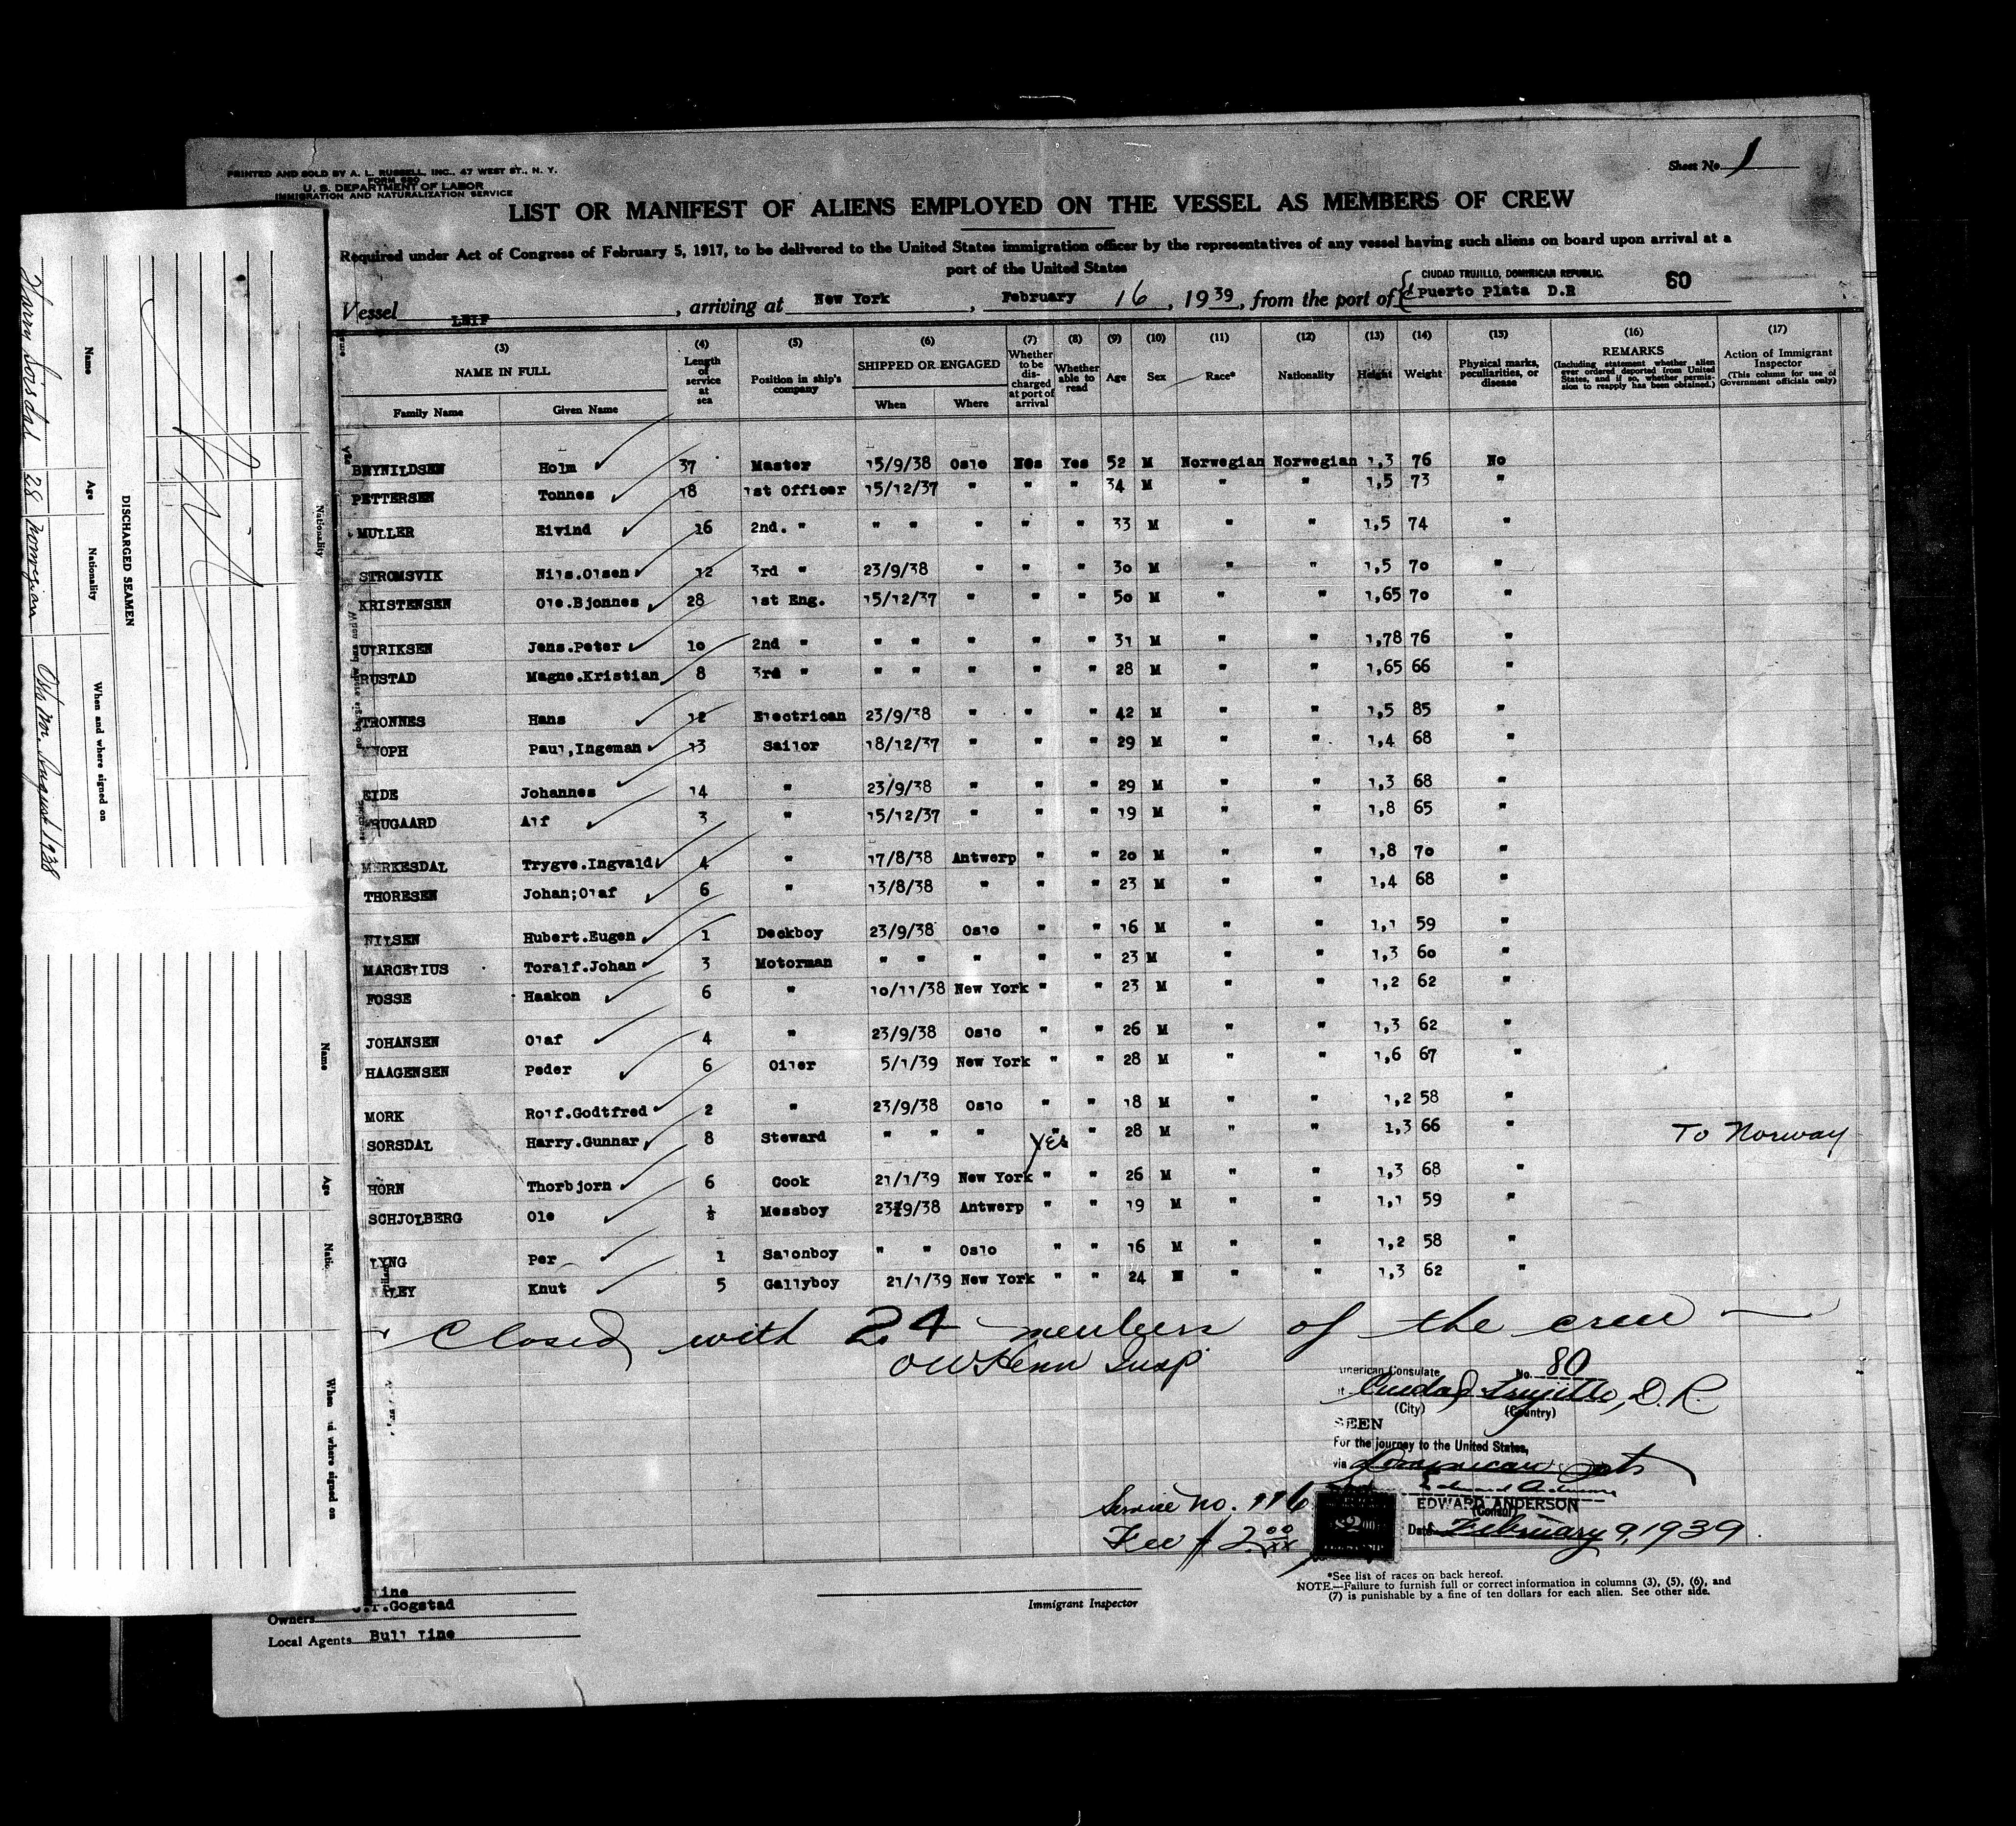 PRINTED AND SOLD BY A. L. RUSSELL, INC., 47 WEST ST., N. Y.
FORM 680
U. S. DEPARTMENT OF LABOR
IMMIGRATION AND NATURALIZATION SERVICE
Sheet No. 1
LIST OR MANIFEST OF ALIENS EMPLOYED ON THE VESSEL AS MEMBERS OF CREW
Required under Act of Congress of February 5, 1917, to be delivered to the United States immigration officer by the representatives of any vessel having such aliens on board upon arrival at a
port of the United States
CIUDAD TRUJILLO, DOMINICAN REPUBLIC.
Vessel LEIF, arriving at New York, February 16, 1939, from the port of Puerto Plata D.R 60
(3) (4) (5) (6) (7) (8) (9) (10) (11) (12) (13) (14) (15) (16) (17)
NAME IN FULL Length of service at sea Position in ship's company SHIPPED OR ENGAGED Whether to be discharged at port of arrival Whether able to read Age Sex Race* Nationality Height Weight Physical marks, peculiarities, or disease REMARKS (Including statement whether alien ever ordered deported from United States, and if so, whether permission to reapply has been obtained.) Action of Immigrant Inspector (This column for use of Government officials only)
Family Name Given Name When Where
BRYNILDSEN Holm 37 Master 15/9/38 Oslo Yes 52 M Norwegian Norwegian 1,3 76 No
PETTERSEN Tonnes 18 1st Officer 15/12/37 " " " 34 M " " 1,5 73 "
MULLER Eivind 16 2nd. " " " " " " 33 M " " 1,5 74 "
STROMSVIK Nils.Olsen 12 3rd " 23/9/38 " " " 30 M " " 1,5 70 "
KRISTENSEN Ole.Bjonnes 28 1st Eng. 15/12/37 " " " 50 M " " 1,65 70 "
ULRIKSEN Jens.Peter 10 2nd " " " " " " 31 M " " 1,78 76 "
RUSTAD Magne.Kristian 8 3rd " " " " " " 28 M " " 1,65 66 "
TRONNES Hans 12 Electrican 23/9/38 " " " 42 M " " 1,5 85 "
Paul,Ingeman 13 Sailor 18/12/37 " " " 29 M " " 1,4 68 "
EIDE Johannes 14 " 23/9/38 " " " 29 M " " 1,3 68 "
Alf 3 " 15/12/37 " " " 19 M " " 1,8 65 "
MERKESDAL Trygve.Ingvald 4 " 17/8/38 Antwerp " " 20 M " " 1,8 70 "
THORESEN Johan;Olaf 6 " 13/8/38 " " " 23 M " " 1,4 68 "
NILSEN Hubert.Eugen 1 Deckboy 23/9/38 Oslo " " 16 M " " 1,1 59 "
MARCELIUS Toralf.Johan 3 Motorman " " " " " 23 M " " 1,3 60 "
FOSSE Haakon 6 " 10/11/38 New York " " 23 M " " 1,2 62 "
JOHANSEN Olaf 4 " 23/9/38 Oslo " " 26 M " " 1,3 62 "
HAAGENSEN Peder 6 Oiler 5/1/39 New York " " 28 M " " 1,6 67 "
MORK Rolf.Godtfred 2 " 23/9/38 Oslo " " 18 M " " 1,2 58 "
SORSDAL Harry.Gunnar 8 Steward " " " Yes " " 28 M " " 1,3 66 " To Norway
HORN Thorbjorn 6 Cook 21/1/39 New York " " 26 M " " 1,3 68 "
SCHJOLBERG Ole ½ Messboy 23/9/38 Antwerp " " 19 M " " 1,1 59 "
LYNG Per 1 Salonboy " " Oslo " " 16 M " " 1,2 58 "
Knut 5 Gallyboy 21/1/39 New York " " 24 M " " 1,3 62 "
Closed with 24 members of the crew
Insp.
American Consulate No. 80
Ciudad Trujillo, D.R.
(City) (Country)
SEEN
For the journey to the United States,
via Dominican
EDWARD ANDERSON
(Consul)
Service No. 116
Fee $ 2.00
Date February 9, 1939
*See list of races on back hereof.
NOTE.—Failure to furnish full or correct information in columns (3), (5), (6), and
(7) is punishable by a fine of ten dollars for each alien. See other side.
Immigrant Inspector
Line
Owners Gogstad
Local Agents Bull Line
DISCHARGED SEAMEN
Name Age Nationality When and where signed on
Harry Sorsdal 28 Norwegian Oslo Nor. August 1938
Nationality
Name
Age
When and where signed on